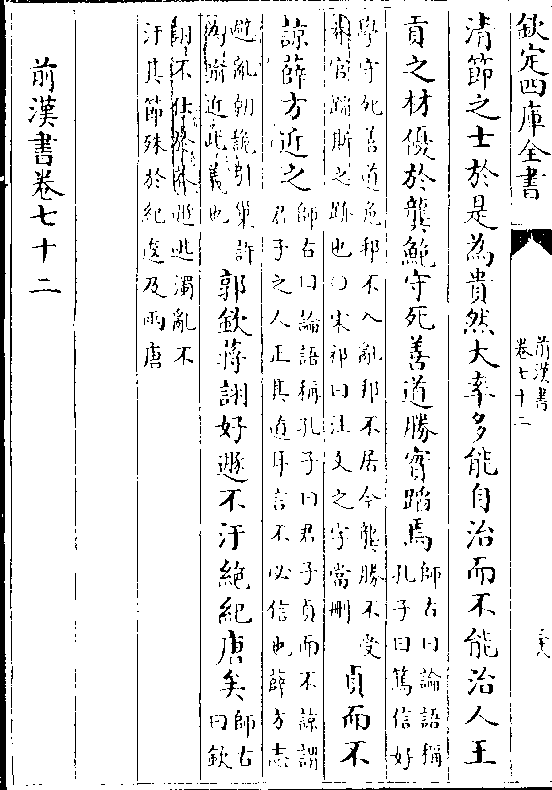 欽定四庫全書
前漢書
卷七十二
清節之士於是為貴然大率多能自治而不能治人王
貢之材優於龔鮑守死善道勝實蹈焉師古曰論語稱
孔子曰篤信好
學守死善道危邦不入亂邦不居今龔勝不受
莽官蹈斯之跡也○宋祁曰注文之字當刪
貞而不
諒薛方近之師古曰論語稱孔子曰君子貞而不諒謂
君子之人正其道耳言不必信也薛方志
避亂朝詭引巢許
為諭近此義也
郭欽蔣詡好遯不汙絶紀唐矣師古
曰欽
詡不仕於莽遯逃濁亂不
汙其節殊於紀逡及兩唐
前漢書卷七十二